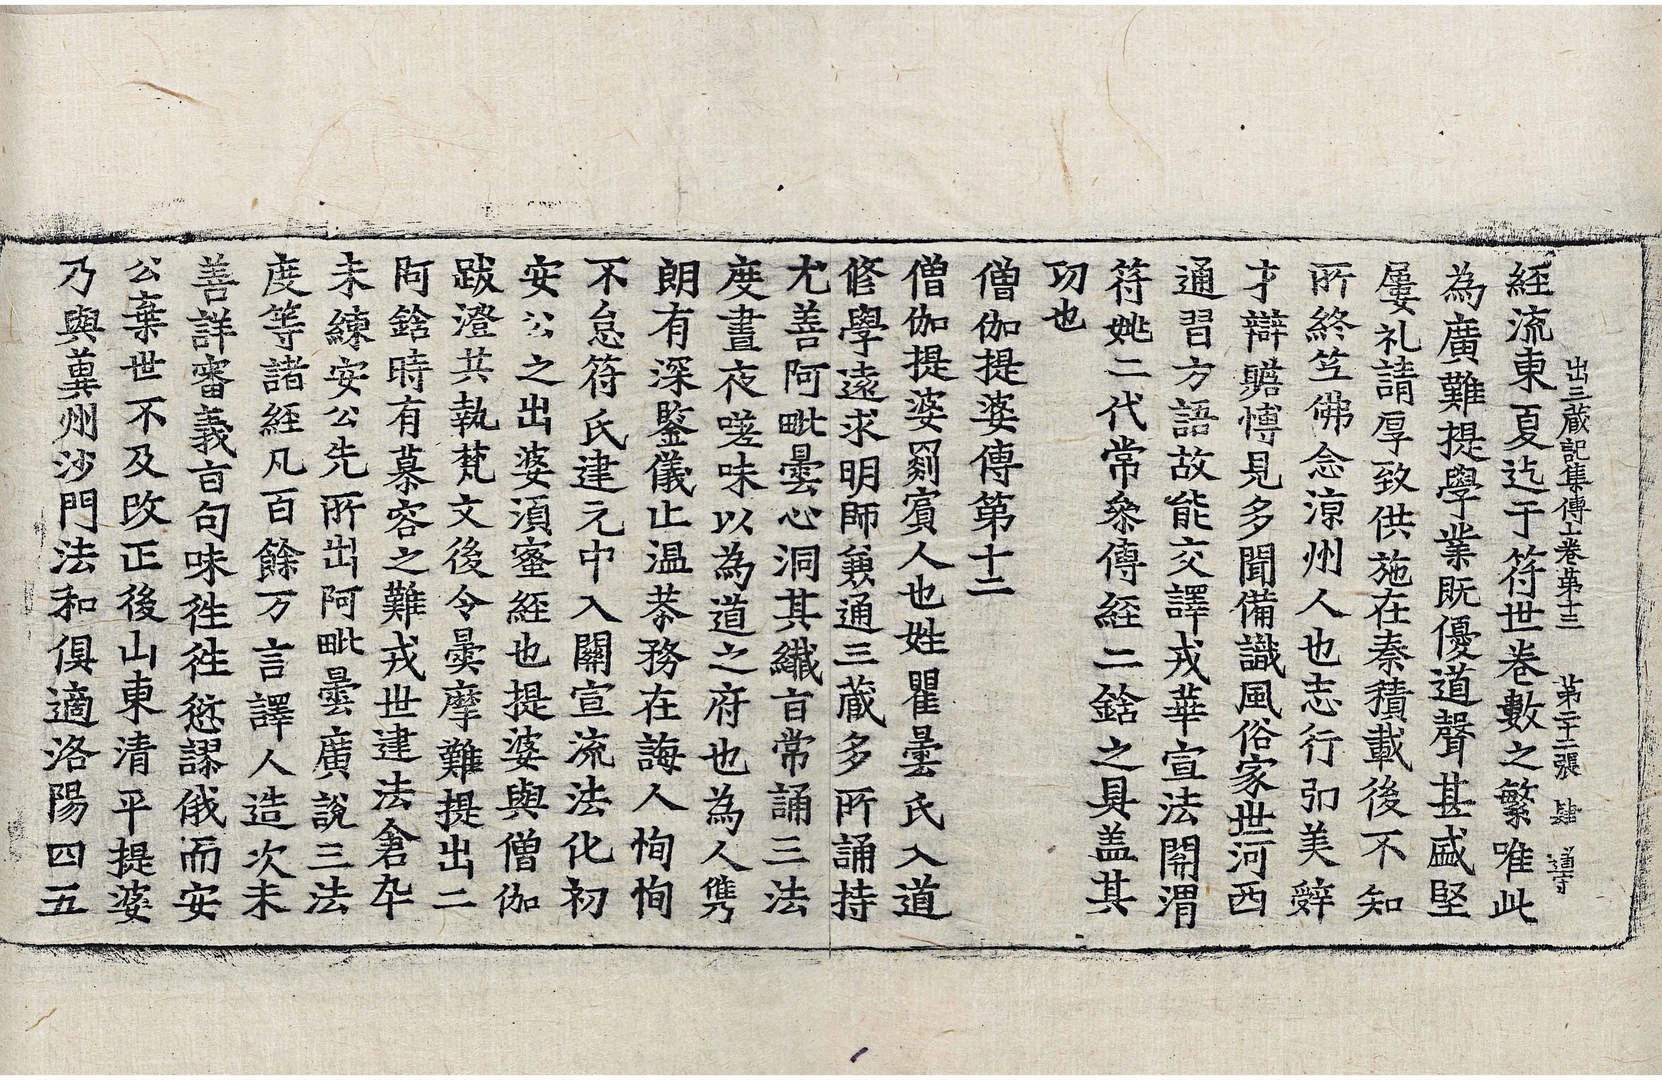 出三藏記集傳上卷第十三 第二十二張 肆 道守
經流東夏迄于符世卷數之繁唯此
為廣難提學業既優道聲甚盛堅
屢礼請厚致供施在秦積載後不知
所終竺佛念涼州人也志行弘美辭
才辯贍慱見多聞備識風俗家世河西
通習方語故能交譯戎華宣法關渭
符姚二代常叅傳經二鋡之具盖其
功也
僧伽提婆傳第十二
僧伽提婆罽賓人也姓瞿曇氏入道
修學遠求明師兼通三藏多所誦持
尤善阿毗曇心洞其纖旨常誦三法
度晝夜嗟味以為道之府也為人儁
朗有深鑒儀止温恭務在誨人恂恂
不怠符氏建元中入關宣流法化初
安公之出婆湏蜜經也提婆與僧伽
跋澄共執梵文後令曇摩難提出二
阿鋡時有慕容之難戎世建法倉卒
未練安公先所出阿毗曇廣說三法
度等諸經凡百餘万言譯人造次未
善詳審義旨句味徃徃愆謬俄而安
公棄世不及改正後山東清平提婆
乃與兾州沙門法和俱適洛陽四五